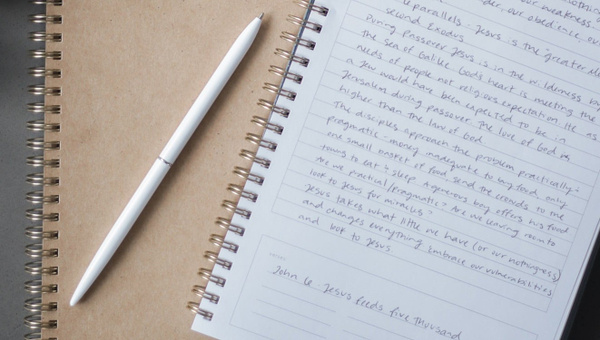 our weakness
under, our obedience, ou
parallels - Jesus is the "greater
second Exodus
During Passover Jesus is in the wilderness by
the sea of Galilee. God's heart is meeting the
needs of people not religious expectation
a Jew would have been expected to be in
Jerusalem during passover. The love of God is
higher than the law of God
The disciples approach the problem practically -
pragmatic - money inadequate to buy food, only
one small basket of food send the crowds to the
towns to eat & sleep. A generous boy offers his food
Are we practical/pragmatic? Are we leaving room to
look to Jesus for miracles?
Jesus takes what little we have (or our nothingness)
and changes everything. Embrace our vulnerabilities
and look to Jesus.
John 6 Jesus feeds five thousand